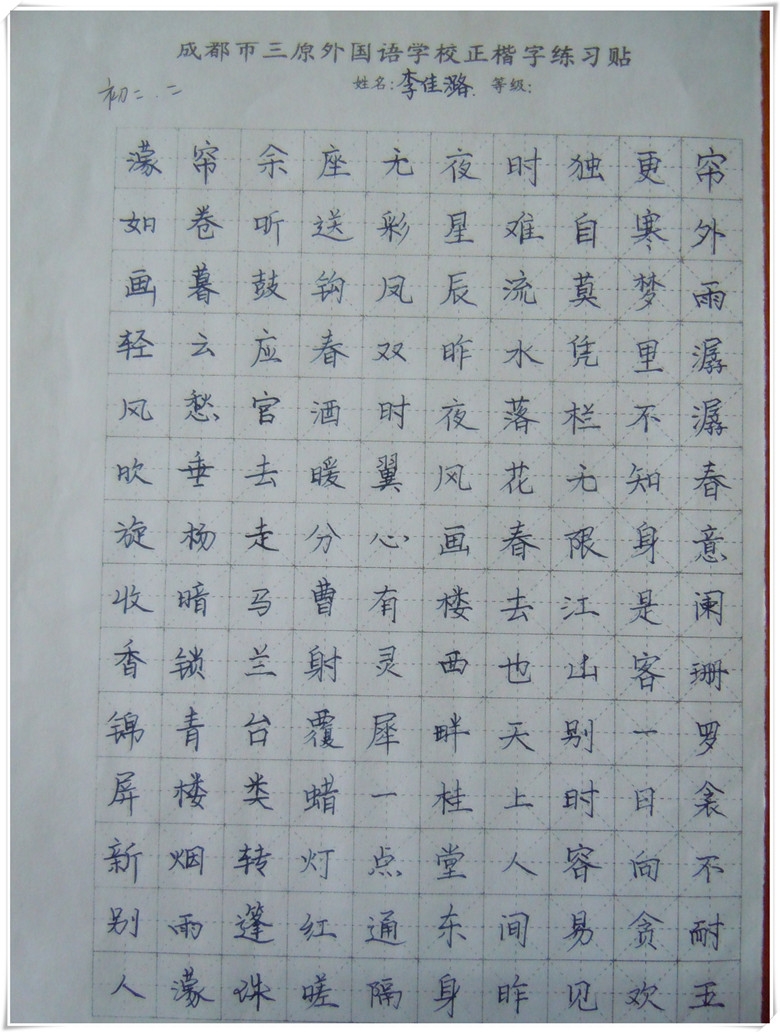 成都市三原外国语学校正楷字练习贴
姓名:李佳潞 等级:
初二.二
帘外雨潺潺春意阑珊罗衾不耐五
更寒梦里不知身是客一日向贪欢
独自莫凭栏无限江山别时容易见
时难流水落花春去也天上人间昨
夜星辰昨夜风画楼西畔桂堂东身
无彩凤双时翼心有灵犀一点通隔
座送钩春酒暖分曹射覆蜡灯红嗟
余听鼓应官去走马兰台类转蓬珠
帘卷暮云愁垂杨暗锁青楼烟雨濛
濛如画轻风吹旋收香锦屏新别人